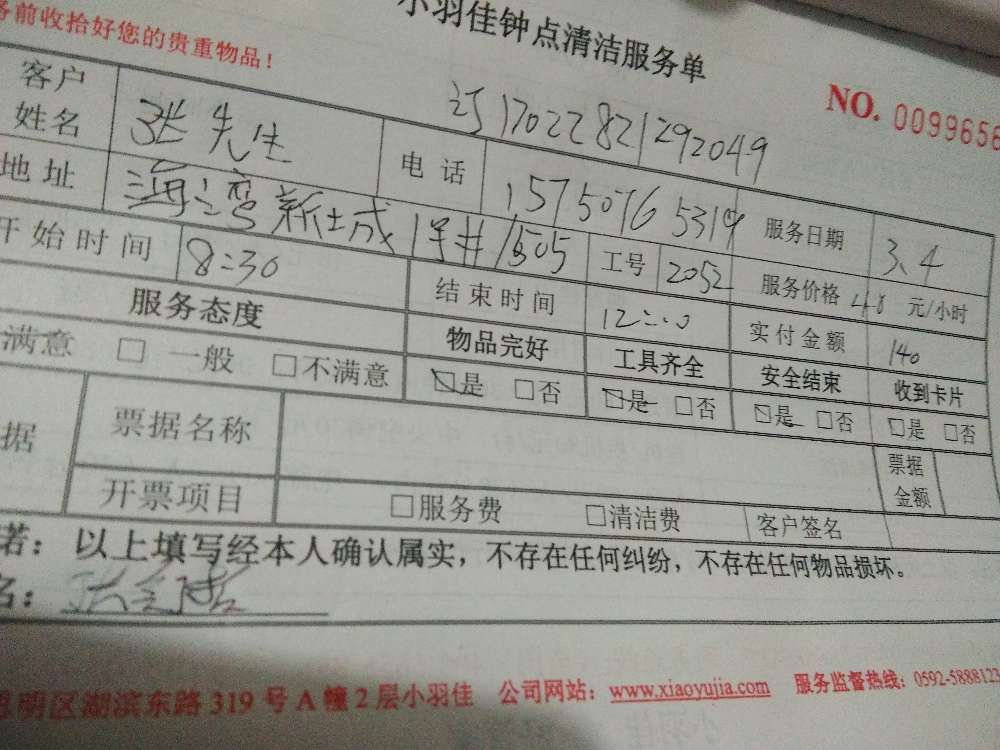 务前收拾好您的贵重物品!
小羽佳钟点清洁服务单
NO. 0099656
订1702282129 2049
客户姓名 张先生 电话 15750765319 服务日期 3、4
地址 海湾新城1号井1505 工号 2052 服务价格 48 元/小时
开始时间 8:30 结束时间 12:00 实付金额 140
服务态度 物品完好 工具齐全 安全结束 收到卡片
满意 □ 一般 □不满意 ☑是 □否 ☑是 □否 ☑是 □否 □是 □否
据 票据名称 票据金额
开票项目 □服务费 □清洁费 客户签名
诺：以上填写经本人确认属实，不存在任何纠纷，不存在任何物品损坏。
名：
思明区湖滨东路 319 号 A 幢 2 层小羽佳 公司网站：www.xiaoyujia.com 服务监督热线：0592-5888123